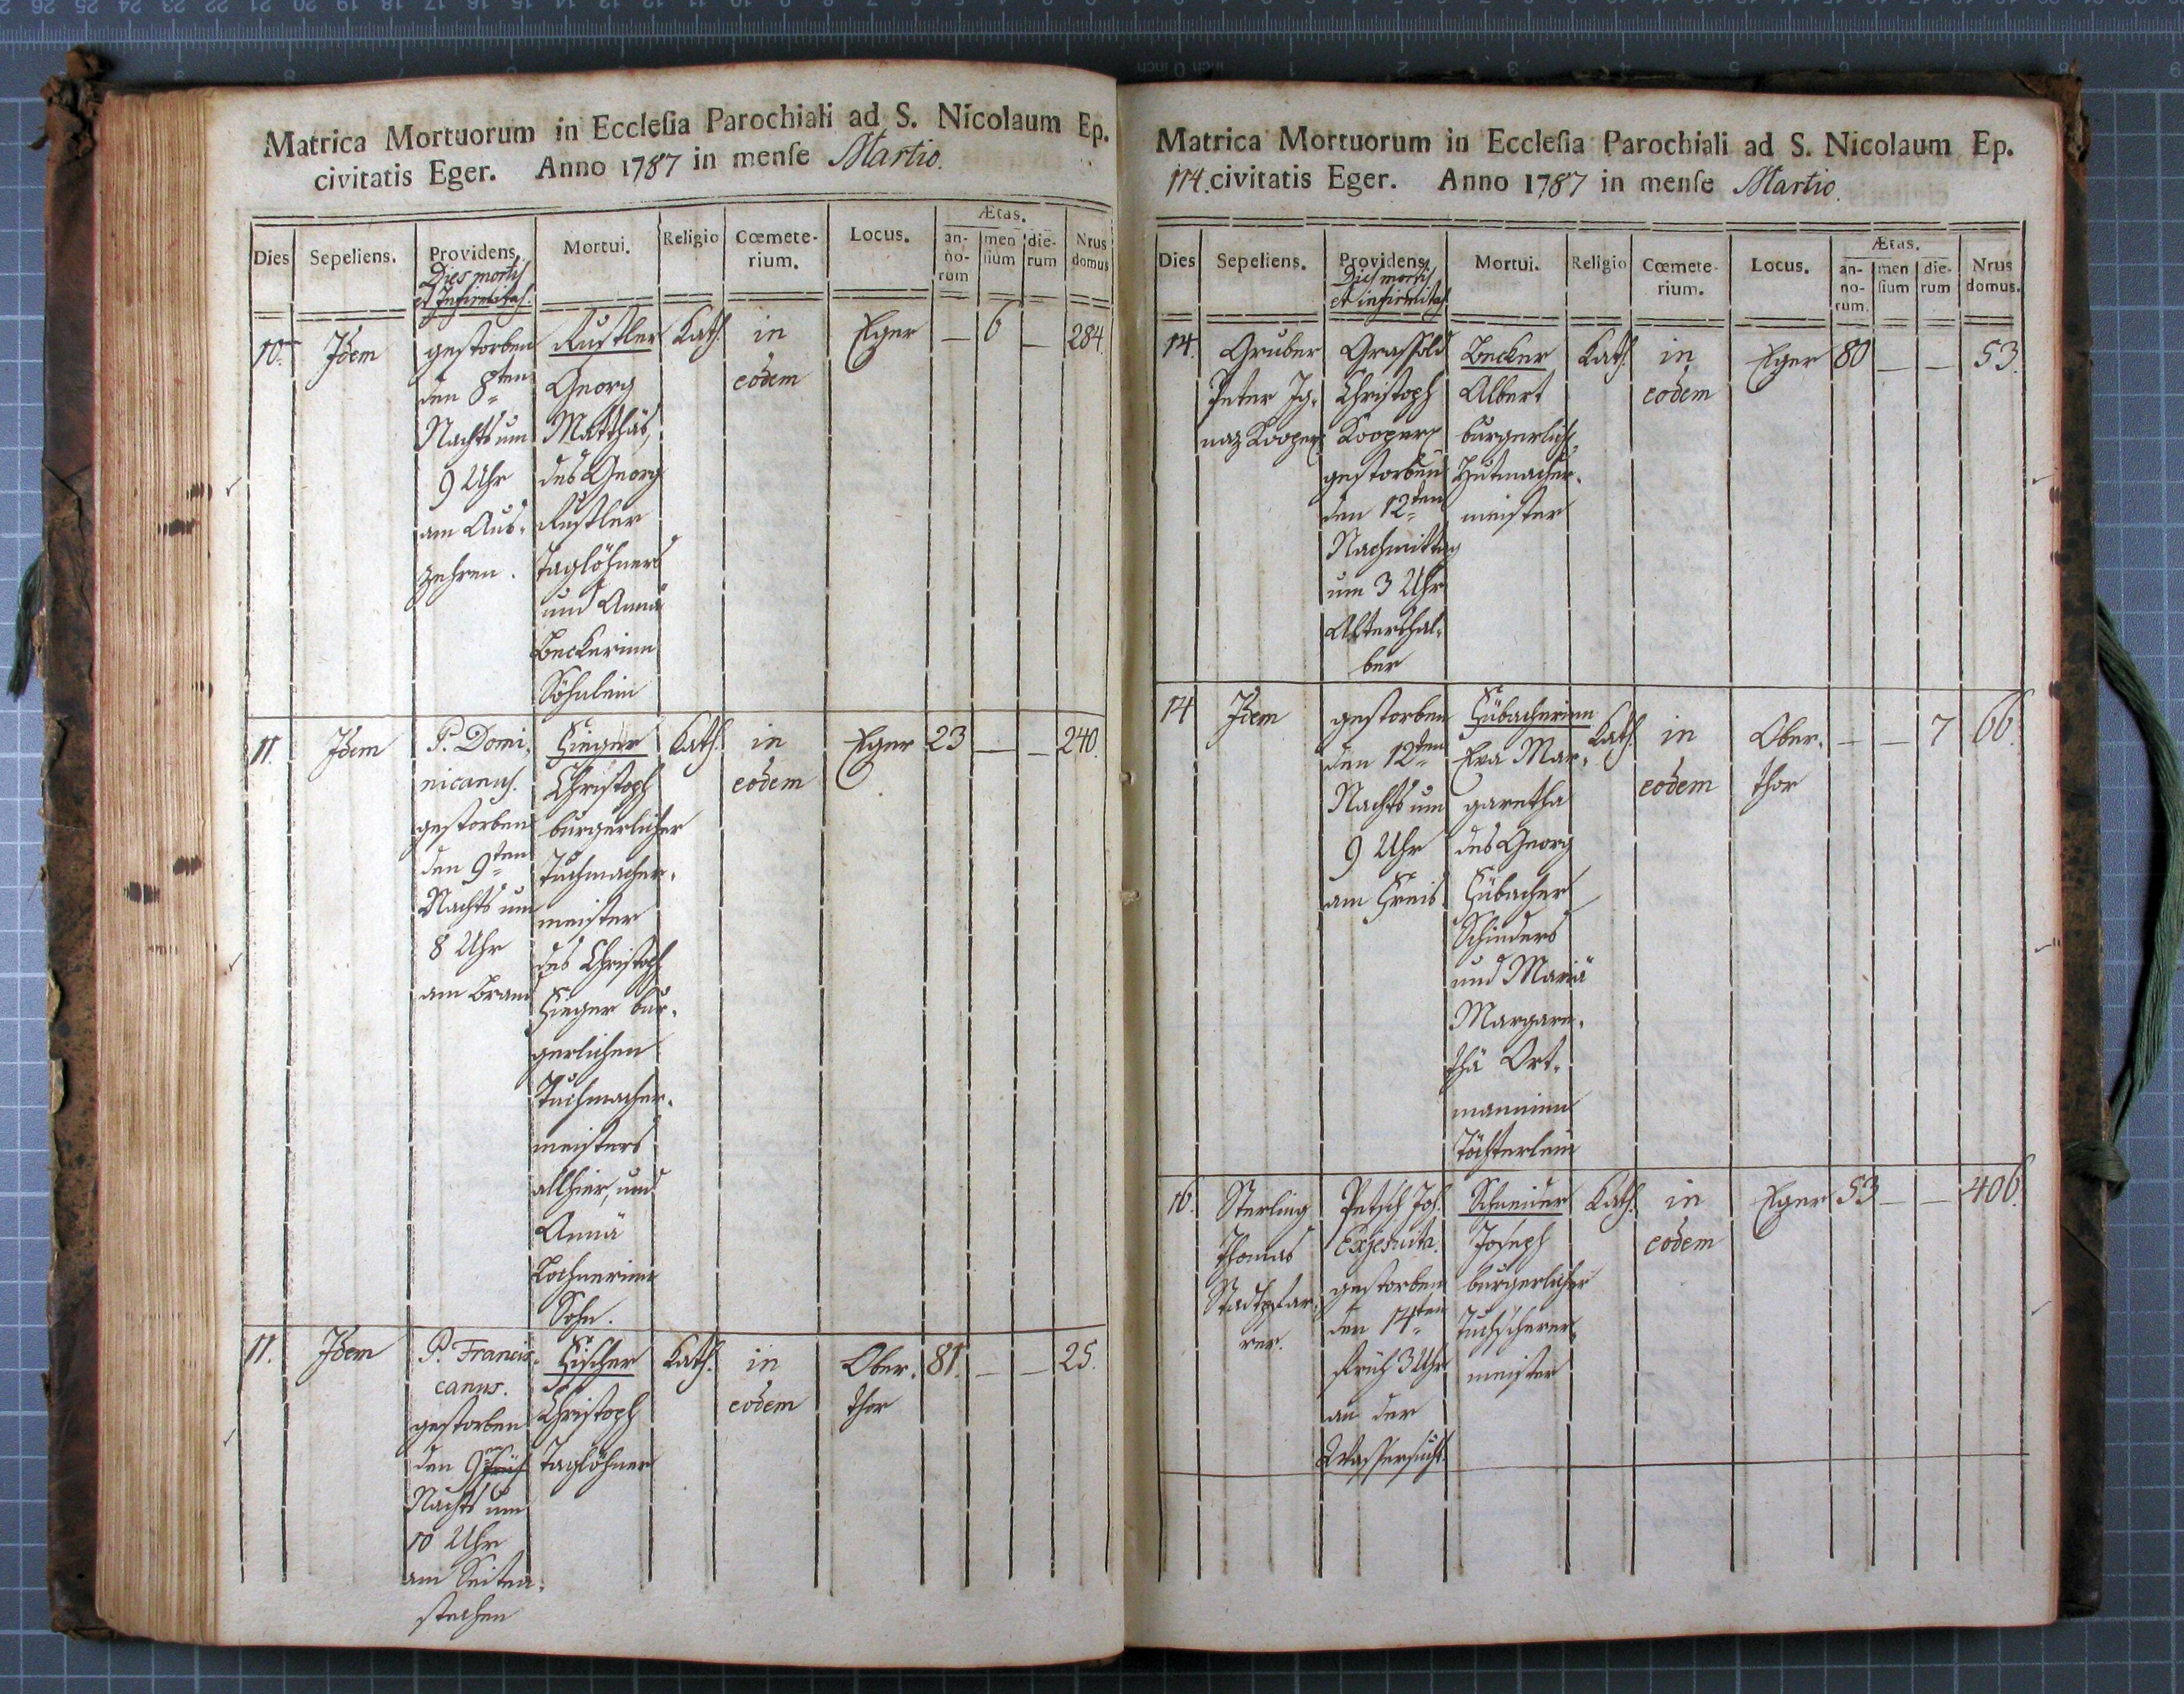 Matrica Mortuorum in Ecclesia Parochiali ad S. Nicolaum Ep.
civitatis Eger. Anno 1787 in mense Martio.
Dies
Sepeliens.
Providens
Dies mortis
et Infirmitas.
Mortui.
Religio
Cœmete-
rium.
Locus.
Ætas.
an-
no-
rum
men
sium
die-
rum
Nrus
domus
10.
Idem
gestorben
den 8ten
Nachts um
9 Uhr
am Aus-
zehren.
Rustler
Georg
Matthäs,
des Georg
Rustler
Taglöhners
und Annä
Beckerinn
Söhnlein
Kath.
in
eodem
Eger
— 6 —
284.
11.
Idem
P. Domi-
nicanus.
gestorben
den 9ten
Nachts um
8 Uhr
am Brand
Christoph
burgerlicher
Tuchmacher-
meister
des Christoph
bur-
gerlichen
Tuchmacher-
meisters
allhier, und
Annä
Lochnerinn
Sohn.
Kath.
in
eodem
Eger
23 — —
240.
11.
Idem
P. Francis-
canus.
gestorben
den 9ten früh
Nachts um
10 Uhr
am Seiten-
stechen
Fischer
Christoph
Taglöhner
Kath.
in
eodem
Ober-
thor
81. — —
25.
Matrica Mortuorum in Ecclesia Parochiali ad S. Nicolaum Ep.
114. civitatis Eger. Anno 1787 in mense Martio.
Dies
Sepeliens.
Providens
Dies mortis
et infirmitas
Mortui.
Religio
Cœmete-
rium.
Locus.
Ætas.
an-
no-
rum.
men
sium
die-
rum
Nrus
domus.
14.
Gruber
Peter Ig-
naz Kooper.
Grassold
Christoph
Kooper.
gestorben
den 12ten
Nachmittag
um 3 Uhr
Altershal-
ber
Becker
Albert
burgerlich.
Hutmacher-
meister
Kath.
in
eodem
Eger
80 — —
53.
14
Idem
gestorben
den 12ten
Nachts um
9 Uhr
am Freis
Hübacherinn
Eva Mar-
garetha
des Georg
Hübacher
Schinders
und Mariä
Margare-
thä Ort-
manninn
Töchterlein
Kath.
in
eodem
Ober-
thor
— — 7
66.
16.
Sterling
Thomas
Stadtpfar-
rer.
Petsch Jos.
Exjesuita.
gestorben
den 14ten
früh 3 Uhr
an der
Wassersucht.
Schneider
Joseph
burgerlicher
Tuchscherer-
meister
Kath.
in
eodem
Eger
53 — —
406.